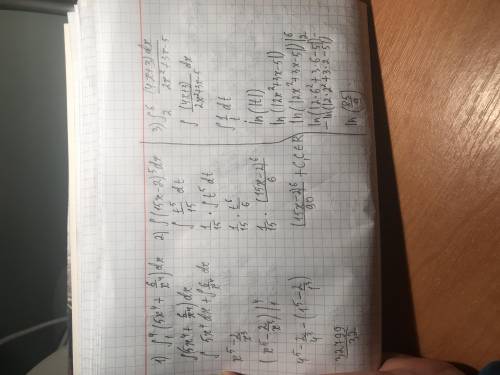 1) ∫₁⁴(5x⁴ + 6/x⁴)dx
∫(5x⁴ + 6/x⁴)dx
∫5x⁴dx + ∫6/x⁴ dx
x⁵ - 2/x³
(x⁵ - 2/x³)|₁⁴
4⁵ - 2/4³ - (1⁵ - 2/1³)
32799/32
2) ∫(15x-2)⁵dx
∫t⁵/15 dt
1/15 · ∫t⁵dt
1/15 · t⁶/6
1/15 · (15x-2)⁶/6
(15x-2)⁶/90 + C, C∈R
3) ∫₂⁶ (4x+3)dx/2x²+3x-5
∫(4x+3)/2x²+3x-5 dx
∫1/t dt
ln(|t|)
ln(|2x²+3x-5|)
ln(|2x²+3x-5|)|₂⁶
ln(|2·6²+3·6-5|)-
-ln(|2·2²+3·2-5|)
ln(85/9)